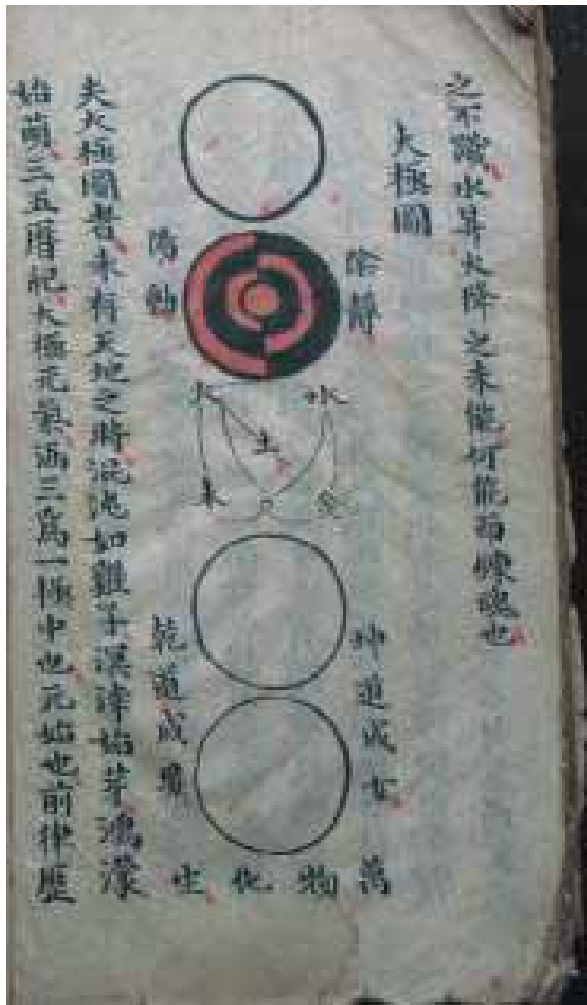 之不識水昇火降之未能何能而煉魂也
太極圖
陰靜
陽動
水
火
土
木
坤道成女
乾道成男
萬物化生
夫太極圖者未有天地之時混沌如雞子溟涬始芽鴻濛
始萌三五曆記太極元氣函三爲一極中也元始也前律歷